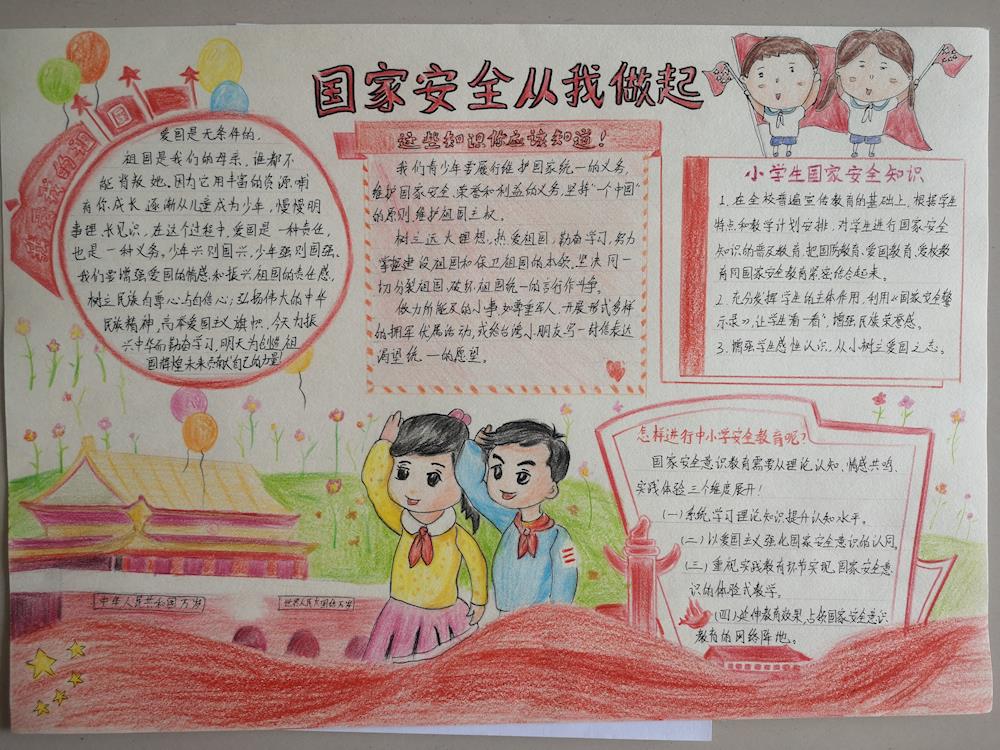 国家安全从我做起
我和我的祖国
爱国是无条件的,
祖国是我们的母亲,谁都不
能背叛她。因为它用丰富的资源哺
育你成长,逐渐从儿童成为少年,慢慢明
事理、长见识,在这个过程中,爱国是一种责任,
也是一种义务。少年兴则国兴,少年强则国强。
我们要增强爱国的情感和振兴祖国的责任感,
树立民族自尊心与自信心;弘扬伟大的中华
民族精神,高举爱国主义旗帜,今天为振
兴中华而勤奋学习,明天为创造祖
国辉煌未来贡献自己的力量!
这些知识你应该知道!
我们青少年要履行维护国家统一的义务,
维护国家安全、荣誉和利益的义务,坚持"一个中国"
的原则,维护祖国主权。
树立远大理想,热爱祖国,勤奋学习,努力
掌握建设祖国和保卫祖国的本领。坚决同一
切分裂祖国、破坏祖国统一的言行作斗争。
做力所能及的小事,如尊重军人,开展形式多样
的拥军优属活动,或给台湾小朋友写一封信表达
渴望统一的愿望。
小学生国家安全知识
1.在全校普遍宣传教育的基础上,根据学生
特点和教学计划安排,对学生进行国家安全
知识的普及教育,把国防教育、爱国教育、爱校教
育同国家安全教育紧密结合起来。
2.充分发挥学生的主体作用,利用《国家安全警
示录》,让学生看一看,增强民族荣辱感。
3.增强学生感性认识,从小树立爱国之志。
怎样进行中小学安全教育呢?
国家安全意识教育需要从理论认知、情感共鸣、
实践体验三个维度展开!
(一)系统学习理论知识提升认知水平。
(二)以爱国主义强化国家安全意识的认同。
(三)重视实践教育环节实现国家安全意
识的体验式教学。
(四)延伸教育效果,占领国家安全意识
教育的网络阵地。
中华人民共和国万岁
世界人民大团结万岁